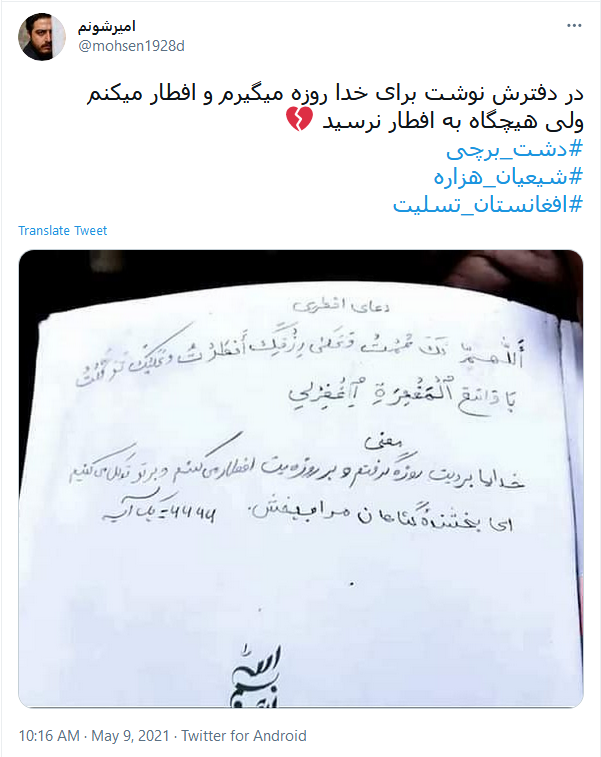 امیرشونم
@mohsen1928d
در دفترش نوشت برای خدا روزه میگیرم و افطار میکنم
ولی هیچگاه به افطار نرسید 💔
#دشت_برچی
#شیعیان_هزاره
#افغانستان_تسلیت
Translate Tweet
دعای افطاری
أَللَّهُمَّ لَکَ صُمْتُ وَعَلىٰ رِزْقِکَ أَفْطَرْتُ وَعَلَیْکَ تَوَکَّلْتُ
یَا وَاسِعَ الْمَغْفِرَةِ اِغْفِرْلِي
معنی
خدایا برایت روزه گرفتم و بر روزه‌یت افطار می‌کنم و بر تو توکل می‌کنیم
ای بخشندهٔ گناهان مرا ببخش. ۶۶۶۶ = یک آیه
الله
10:16 AM · May 9, 2021 · Twitter for Android